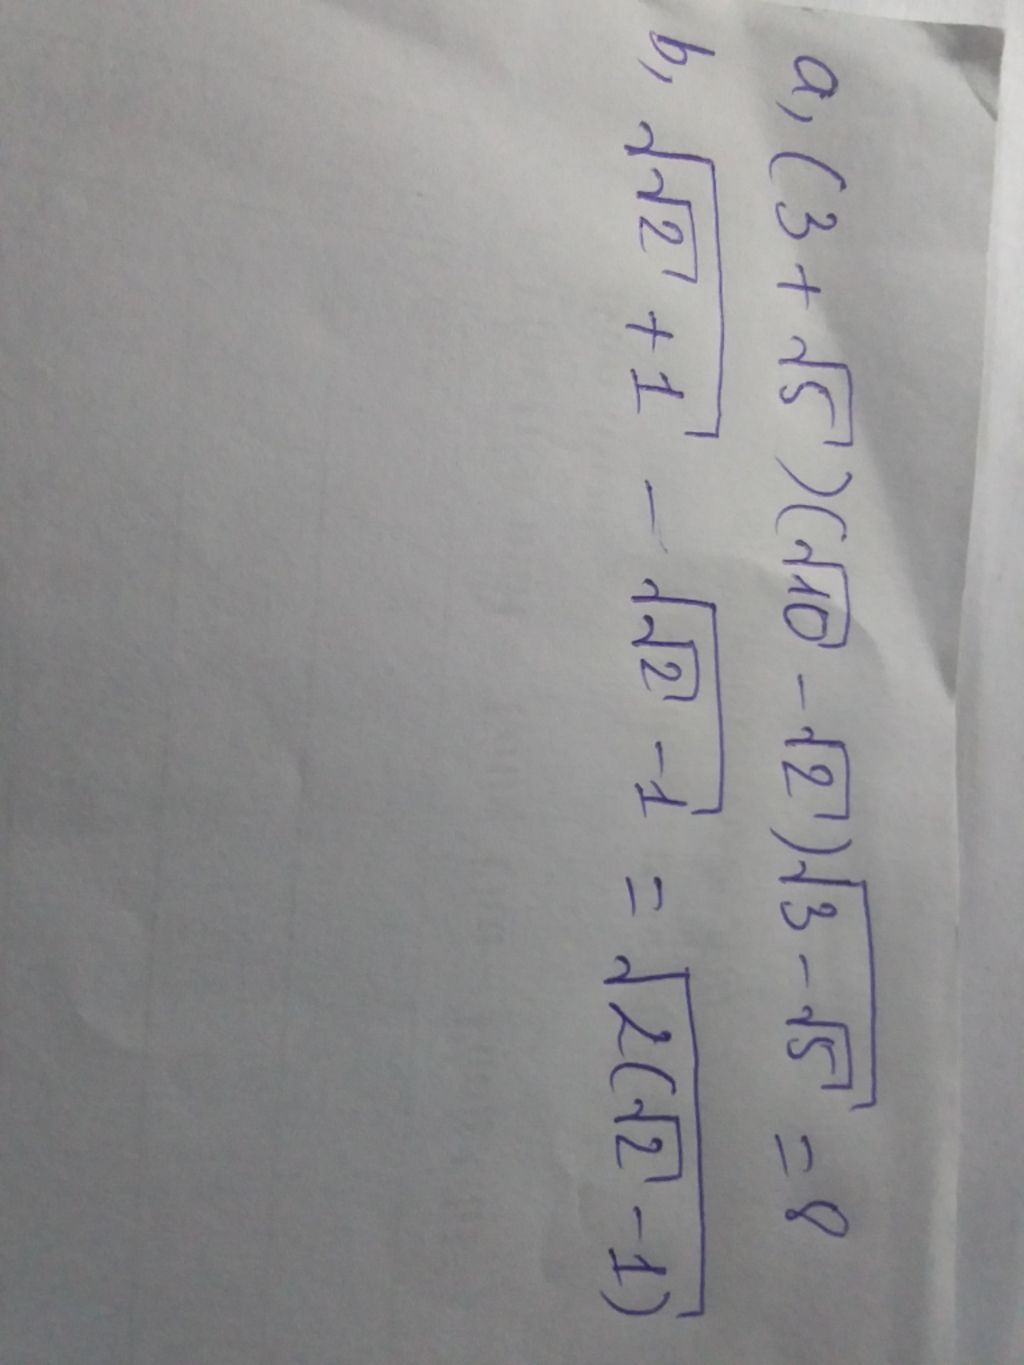 a, (3 + √5)(√10 - √2)√(3 - √5) = 8
b, √(√2 + 1) - √(√2 - 1) = √(2(√2 - 1))